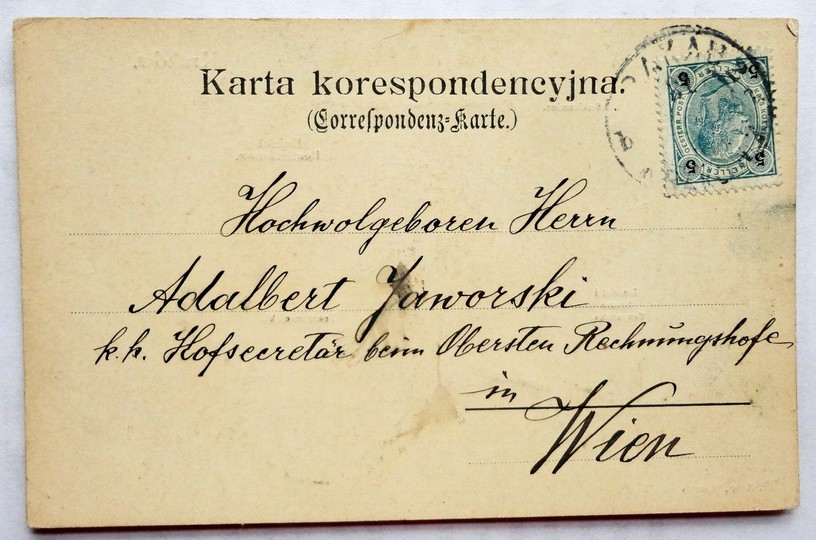 Karta korespondencyjna.
(Correſpondenz-Karte.)
5 5
HELLER
OESTERR. POST
5 5
Hochwolgeboren Herrn
Adalbert Jaworski
k.k. Hofsecretär beim Obersten Rechnungshofe
in
Wien